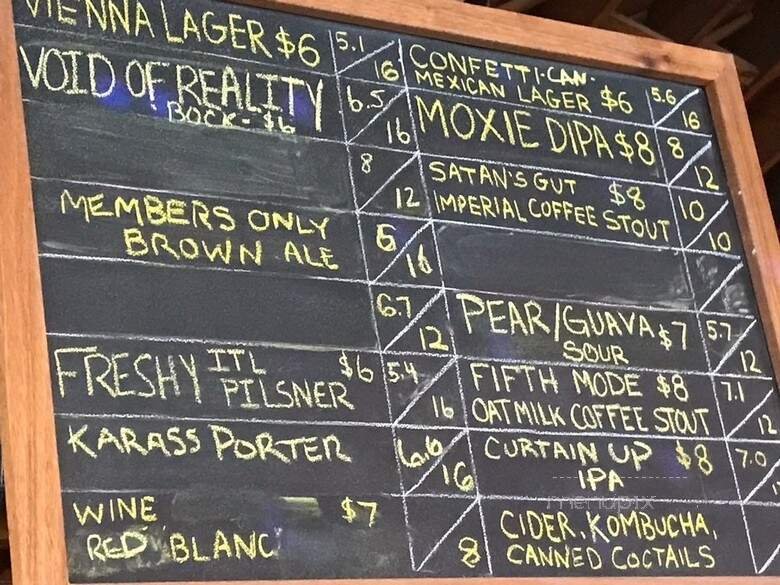 VIENNA LAGER $6 5.1/16
VOID OF REALITY 6.5/16
BOCK - $6
8/12
MEMBERS ONLY 6/16
BROWN ALE
6.7/12
FRESHY ITL $6 5.4/16
PILSNER
KARASS PORTER 6.6/16
WINE $7
RED BLANC 8
CONFETTI-CAN- 5.6/16
MEXICAN LAGER $6
MOXIE DIPA $8 8/12
SATAN'S GUT $8 10/10
IMPERIAL COFFEE STOUT
PEAR/GUAVA $7 5.7/12
SOUR
FIFTH MODE $8 7.1/12
OATMILK COFFEE STOUT
CURTAIN UP $8 7.0
IPA
menupix
CIDER, KOMBUCHA,
CANNED COCTAILS